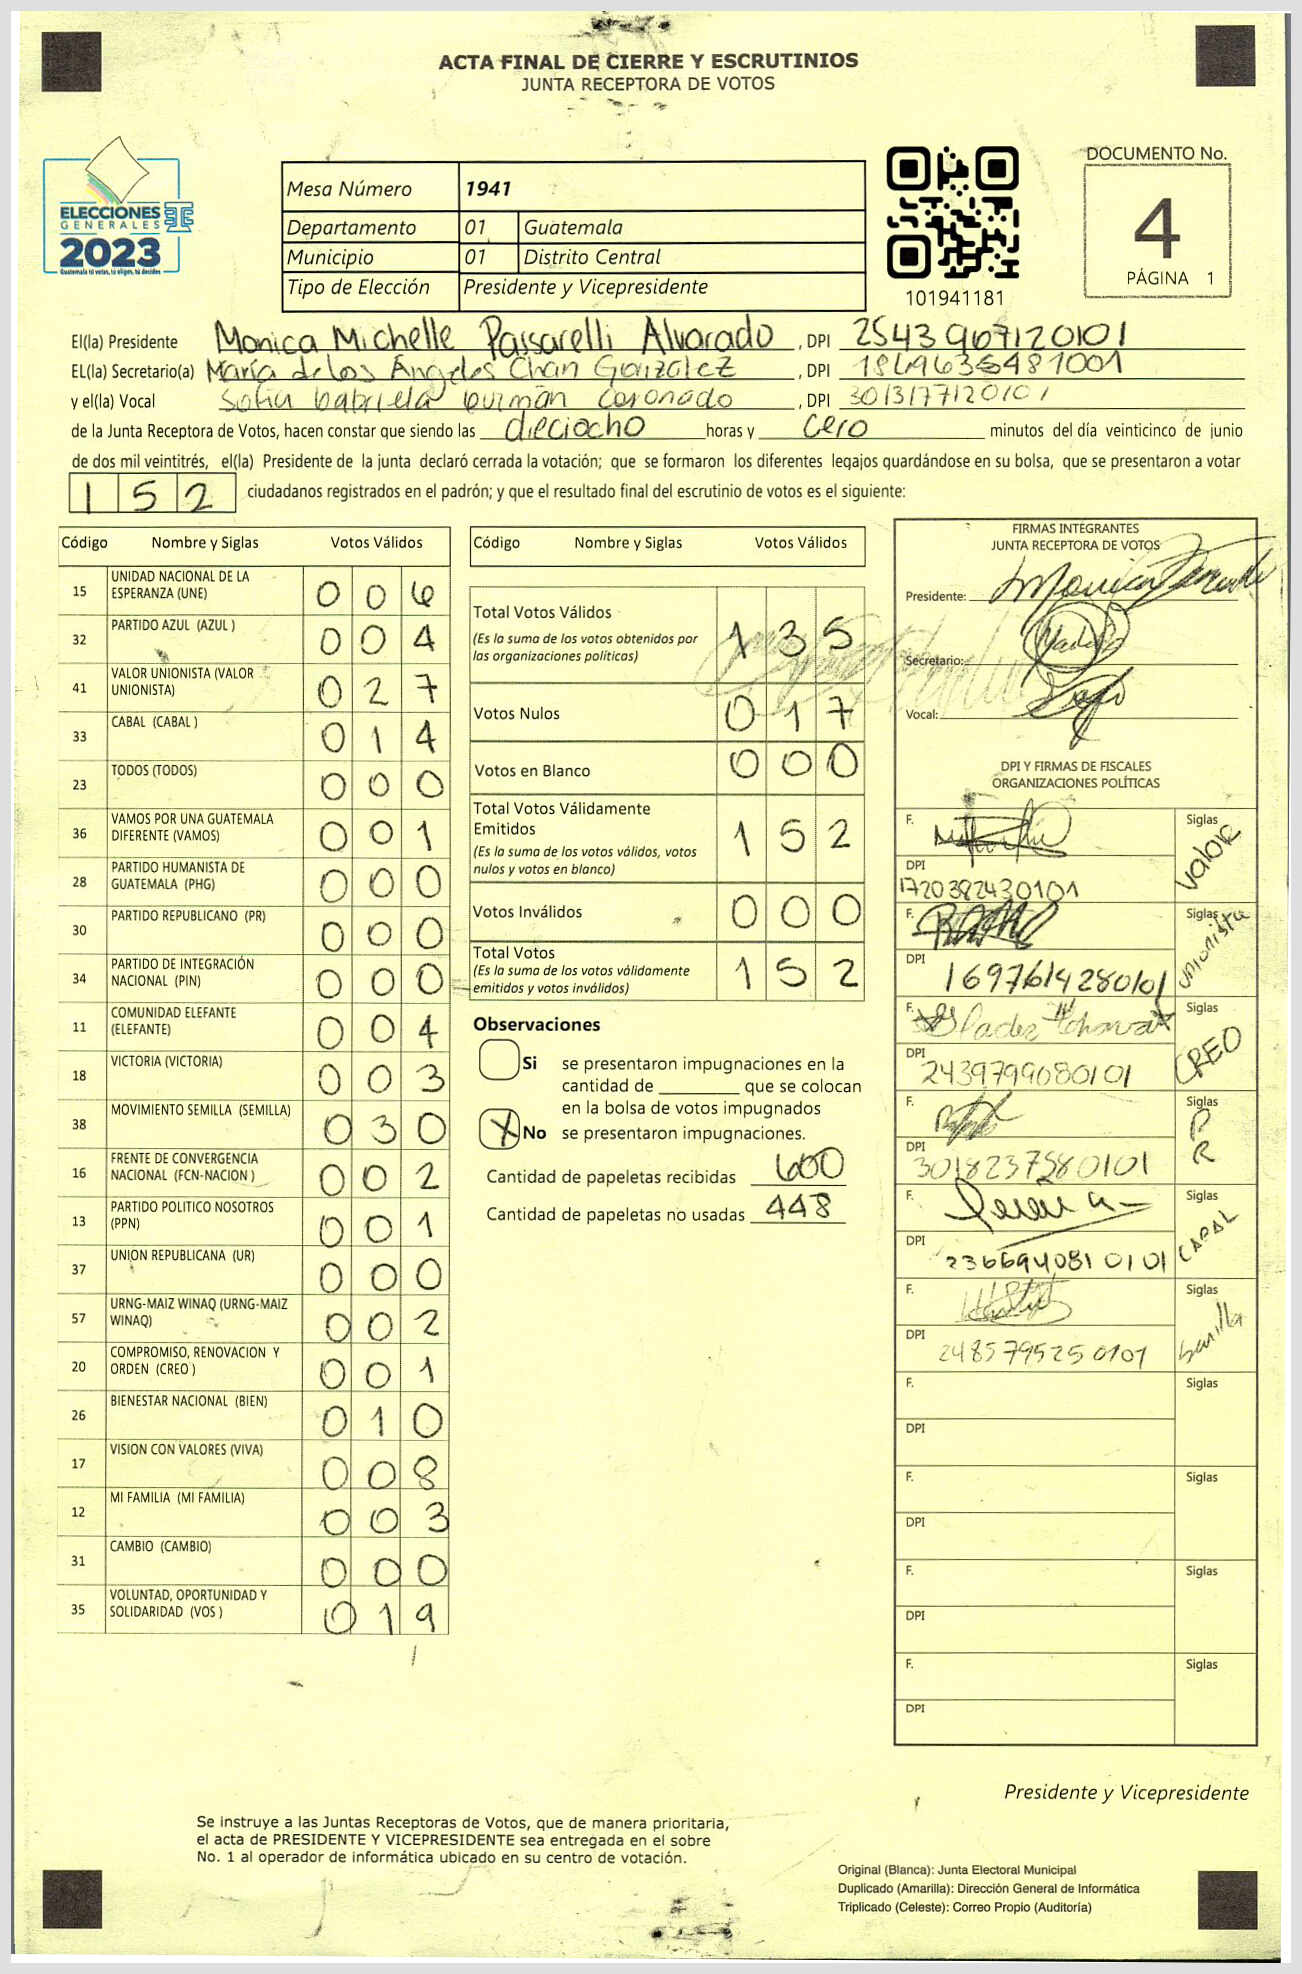 ACTA FINAL DE CIERRE Y ESCRUTINIOS
JUNTA RECEPTORA DE VOTOS
ELECCIONES
GENERALES
2023
Guatemala tú votas, tú eliges, tú decides
Mesa Número 1941
Departamento 01 Guatemala
Municipio 01 Distrito Central
Tipo de Elección Presidente y Vicepresidente
101941181
DOCUMENTO No.
4
PÁGINA 1
El(la) Presidente Monica Michelle Passarelli Alvarado , DPI 2543967120101
EL(la) Secretario(a) María de los Ángeles Chan González , DPI
y el(la) Vocal Sofia Gabriela Guzmán Coronado , DPI 3013177120101
de la Junta Receptora de Votos, hacen constar que siendo las dieciocho horas y cero minutos del día veinticinco de junio
de dos mil veintitrés, el(la) Presidente de la junta declaró cerrada la votación; que se formaron los diferentes legajos guardándose en su bolsa, que se presentaron a votar
152 ciudadanos registrados en el padrón; y que el resultado final del escrutinio de votos es el siguiente:
Código Nombre y Siglas Votos Válidos
15 UNIDAD NACIONAL DE LA ESPERANZA (UNE) 006
32 PARTIDO AZUL (AZUL ) 004
41 VALOR UNIONISTA (VALOR UNIONISTA) 027
33 CABAL (CABAL ) 014
23 TODOS (TODOS) 000
36 VAMOS POR UNA GUATEMALA DIFERENTE (VAMOS) 001
28 PARTIDO HUMANISTA DE GUATEMALA (PHG) 000
30 PARTIDO REPUBLICANO (PR) 000
34 PARTIDO DE INTEGRACIÓN NACIONAL (PIN) 000
11 COMUNIDAD ELEFANTE (ELEFANTE) 004
18 VICTORIA (VICTORIA) 003
38 MOVIMIENTO SEMILLA (SEMILLA) 030
16 FRENTE DE CONVERGENCIA NACIONAL (FCN-NACION ) 002
13 PARTIDO POLITICO NOSOTROS (PPN) 001
37 UNION REPUBLICANA (UR) 000
57 URNG-MAIZ WINAQ (URNG-MAIZ WINAQ) 002
20 COMPROMISO, RENOVACION Y ORDEN (CREO ) 001
26 BIENESTAR NACIONAL (BIEN) 010
17 VISION CON VALORES (VIVA) 008
12 MI FAMILIA (MI FAMILIA) 003
31 CAMBIO (CAMBIO) 000
35 VOLUNTAD, OPORTUNIDAD Y SOLIDARIDAD (VOS ) 019
Código Nombre y Siglas Votos Válidos
Total Votos Válidos 135
(Es la suma de los votos obtenidos por
las organizaciones políticas)
Votos Nulos 017
Votos en Blanco 000
Total Votos Válidamente
Emitidos 152
(Es la suma de los votos válidos, votos
nulos y votos en blanco)
Votos Inválidos 000
Total Votos 152
(Es la suma de los votos válidamente
emitidos y votos inválidos)
Observaciones
Si se presentaron impugnaciones en la
cantidad de ________ que se colocan
en la bolsa de votos impugnados
X No se presentaron impugnaciones.
Cantidad de papeletas recibidas 600
Cantidad de papeletas no usadas 448
FIRMAS INTEGRANTES
JUNTA RECEPTORA DE VOTOS
Presidente:
Secretario:
Vocal:
DPI Y FIRMAS DE FISCALES
ORGANIZACIONES POLÍTICAS
F. Siglas Valor
DPI 1720382430101
F. Siglas Unionista
DPI 1697614280101
F. Siglas CREO
DPI 2439799080101
F. Siglas PR
DPI 3018237580101
F. Siglas CABAL
DPI 2366940810101
F. Siglas Semilla
DPI 2485795250101
F. Siglas
DPI
F. Siglas
DPI
F. Siglas
DPI
F. Siglas
DPI
Presidente y Vicepresidente
Se instruye a las Juntas Receptoras de Votos, que de manera prioritaria,
el acta de PRESIDENTE Y VICEPRESIDENTE sea entregada en el sobre
No. 1 al operador de informática ubicado en su centro de votación.
Original (Blanca): Junta Electoral Municipal
Duplicado (Amarilla): Dirección General de Informática
Triplicado (Celeste): Correo Propio (Auditoría)